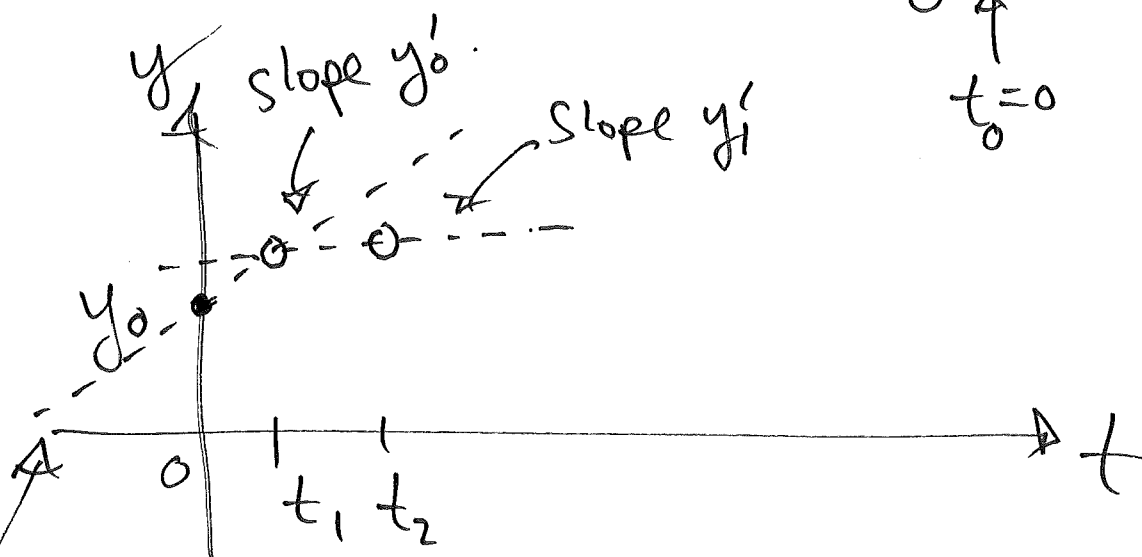 y
slope y'₀
slope y'₁
t₀=0
y₀
0
t₁ t₂
t